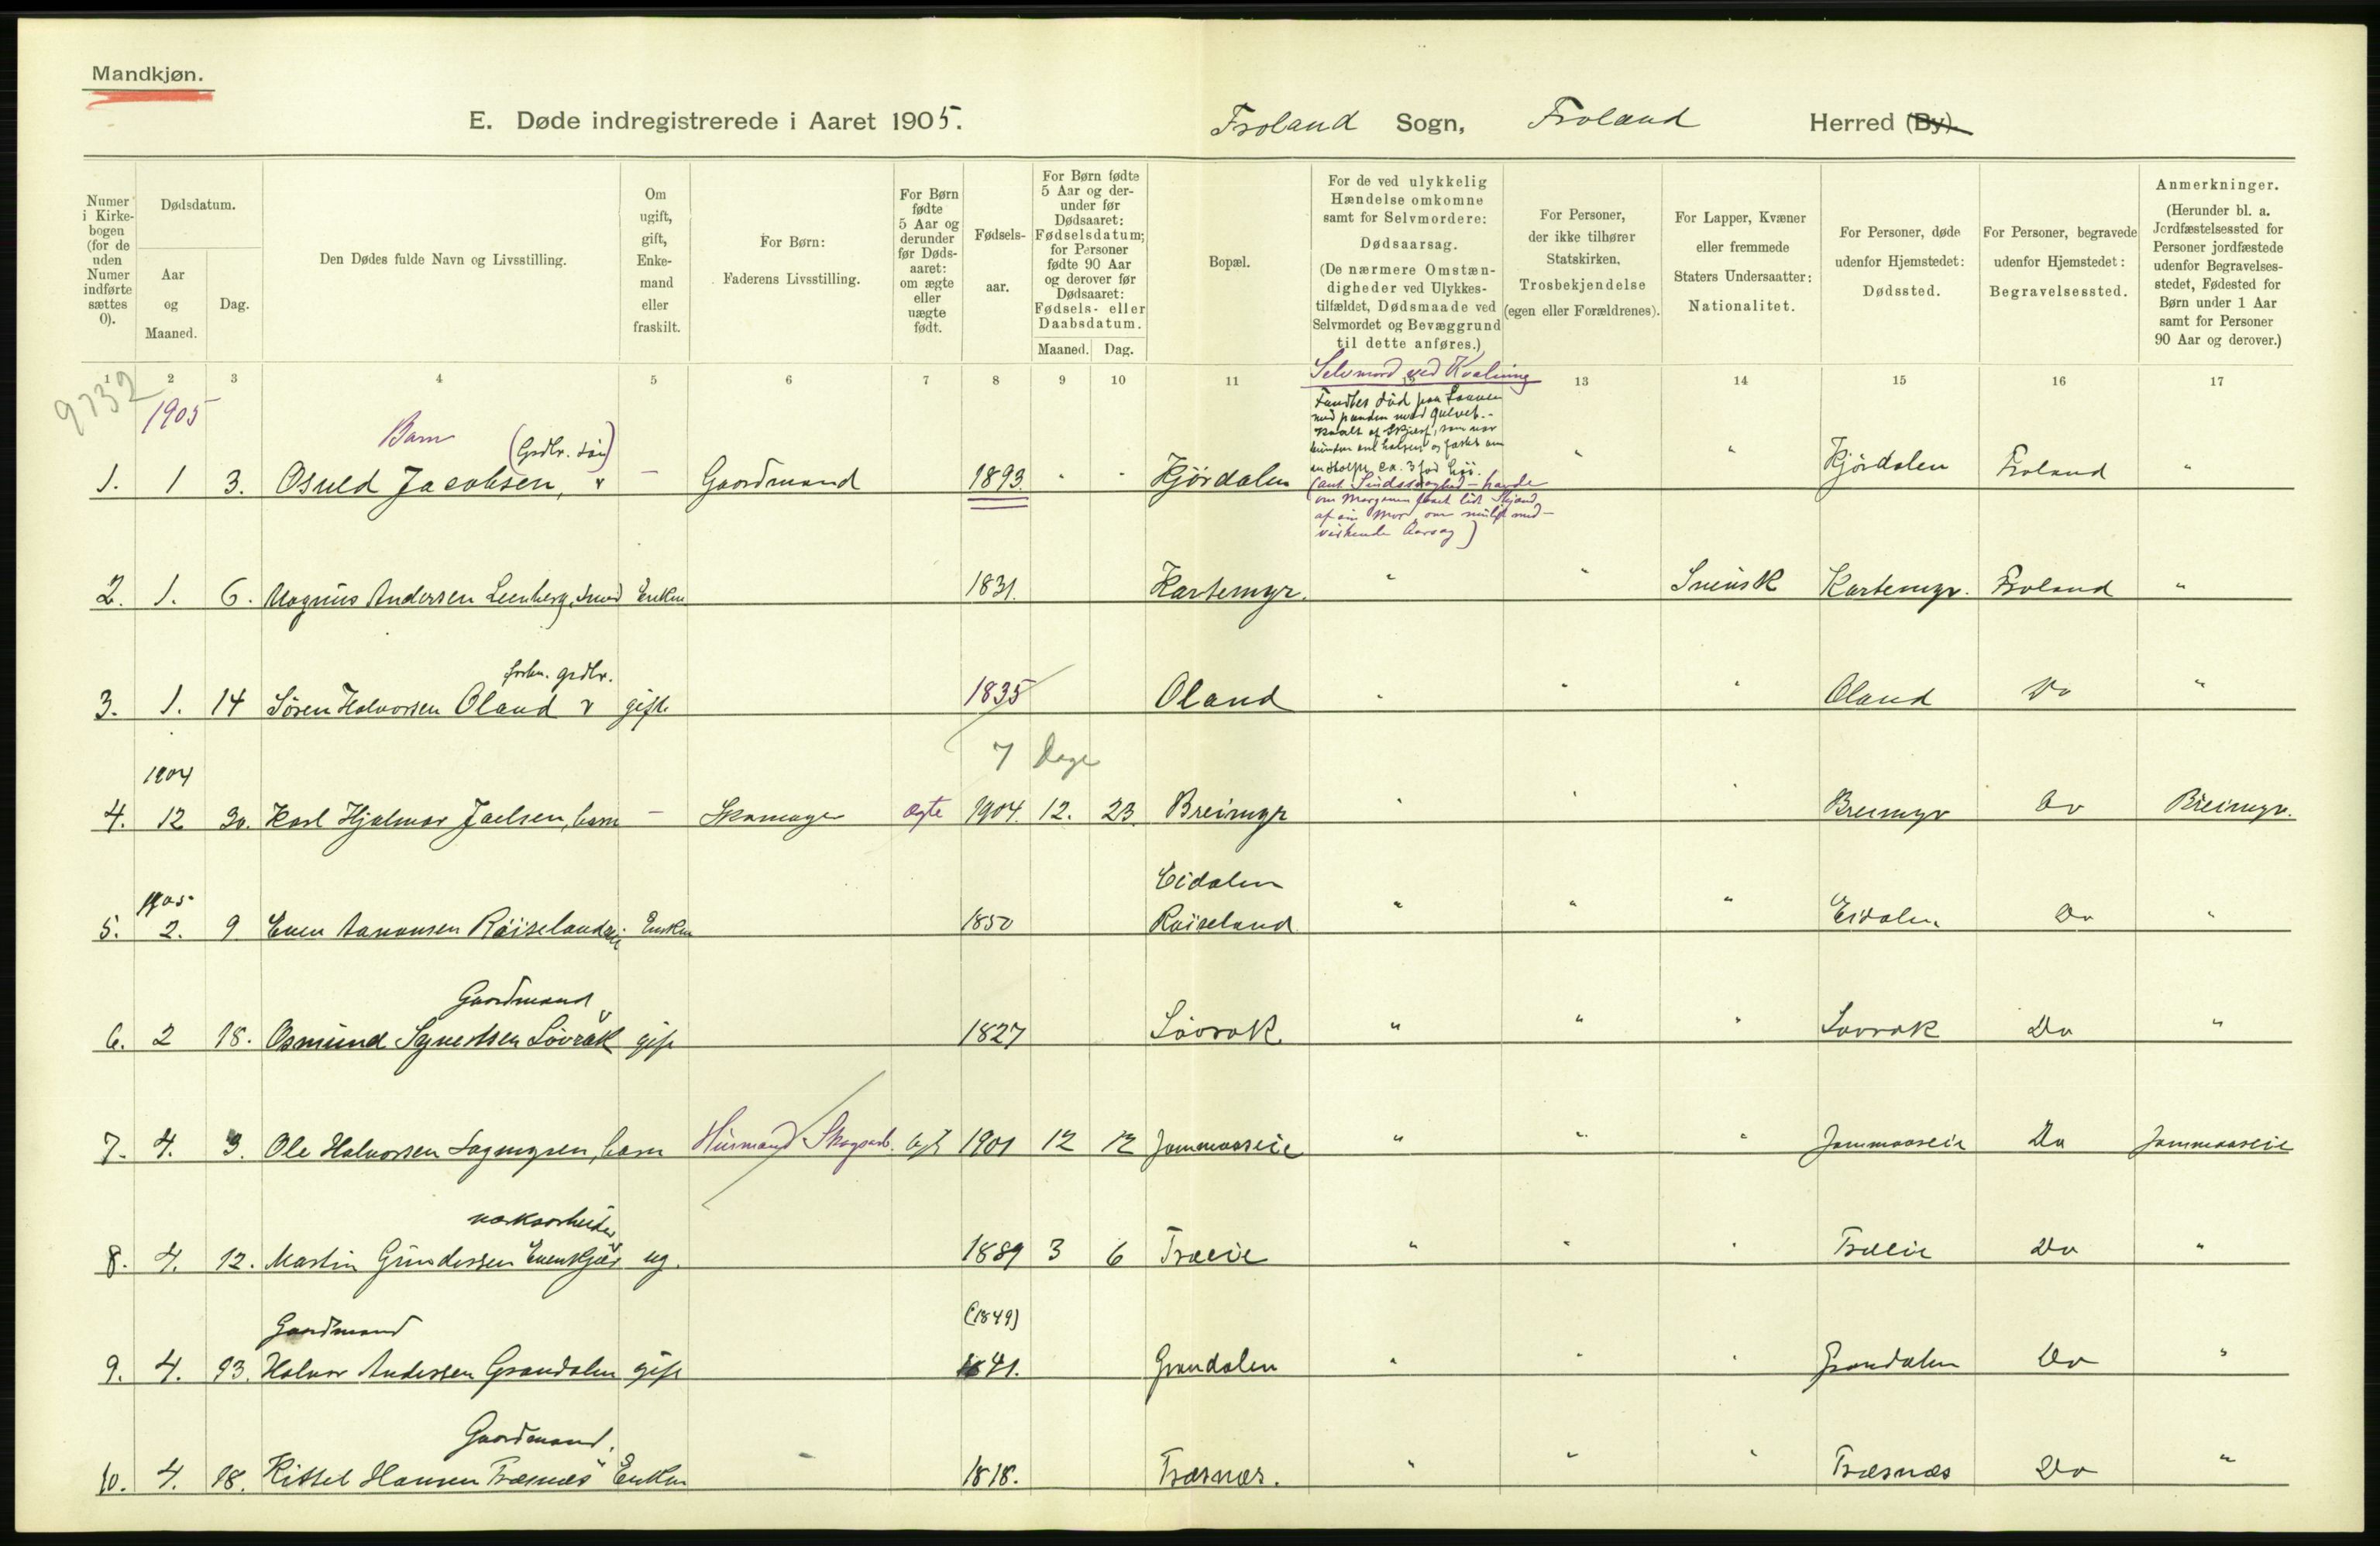 Mandkjøn.
E. Døde indregistrerede i Aaret 1905. Froland Sogn, Froland Herred (By).
Numer i Kirkebogen (for de uden Numer indførte sættes 0).
Dødsdatum.
Aar og Maaned.
Dag.
Den Dødes fulde Navn og Livsstilling.
Om ugift, gift, Enkemand eller fraskilt.
For Børn: Faderens Livsstilling.
For Børn fødte 5 Aar og derunder før Dødsaaret: om ægte eller uægte født.
Fødselsaar.
For Børn fødte 5 Aar og derunder før Dødsaaret: Fødselsdatum; for Personer fødte 90 Aar og derover før Dødsaaret: Fødsels- eller Daabsdatum.
Maaned. Dag.
Bopæl.
For de ved ulykkelig Hændelse omkomne samt for Selvmordere: Dødsaarsag. (De nærmere Omstændigheder ved Ulykkestilfældet, Dødsmaade ved Selvmordet og Bevæggrund til dette anføres.)
For Personer, der ikke tilhører Statskirken, Trosbekjendelse (egen eller Forældrenes).
For Lapper, Kvæner eller fremmede Staters Undersaatter: Nationalitet.
For Personer, døde udenfor Hjemstedet: Dødssted.
For Personer, begravede udenfor Hjemstedet: Begravelsessted.
Anmerkninger. (Herunder bl. a. Jordfæstelsessted for Personer jordfæstede udenfor Begravelsesstedet, Fødested for Børn under 1 Aar samt for Personer 90 Aar og derover.)
1 2 3 4 5 6 7 8 9 10 11 12 13 14 15 16 17
9732
1905
Selvmord ved Kvælning
Fundtes død paa Laaven
med panden mod gulvet. -
Kvalt af Skjærf, som var
bunden om halsen og fæstet om
en stolpe ca. 3 fod høi.
(ant. Sindssvaghed - havde
om Morgenen faaet lidt Skjænd
af sin Mor, om muligt med-
virkende Aarsag)
Barn (Grdbr. søn)
1. 1 3. Osuld Jacobsen, — Gaardmand 1893 " " Kjørdalen " " Kjørdalen Froland "
2. 1. 6. Magnus Andersen Leenberg, smed Enkm 1831. Kartemyr. " " Svensk Kartemyr. Froland "
forhv. grdbr.
3. 1. 14 Søren Halvorsen Oland gift 1835 Oland " " " Oland Do "
7 Dage
1904
4. 12 30. Karl Hjalmar Joelsen, barn — Skomager ægte 1904. 12. 23. Breimyr " " " Breimyr Do Breimyr.
1905 Eidalen
5. 2. 9 Even Aanonsen Røiseland Enkm 1850 Røiseland " " " Eidalen Do "
Gaardmand
6. 2 18. Osmund Syvertsen Løvrak gift 1827 Løvrak " " " Løvrak Do "
7. 4. 3. Ole Halvorsen Sagmyren, barn Husmand Skogsarb. ægt 1901 12 12 Jommaaseie " " " Jommaaseie Do Jommaaseie
værksarbeider
8. 4. 12. Martin Gundersen Evenkjær ug. 1889 3 6 Træeie " " " Træeie Do "
Gaardmand (1849)
9. 4. 93. Halvor Andersen Grandalen gift 1841. Grandalen " " " Grandalen Do "
Gaardmand.
10. 4. 18. Kittel Hansen Træsnæs Enkm 1818. Træsnæs. " " " Træsnæs Do "